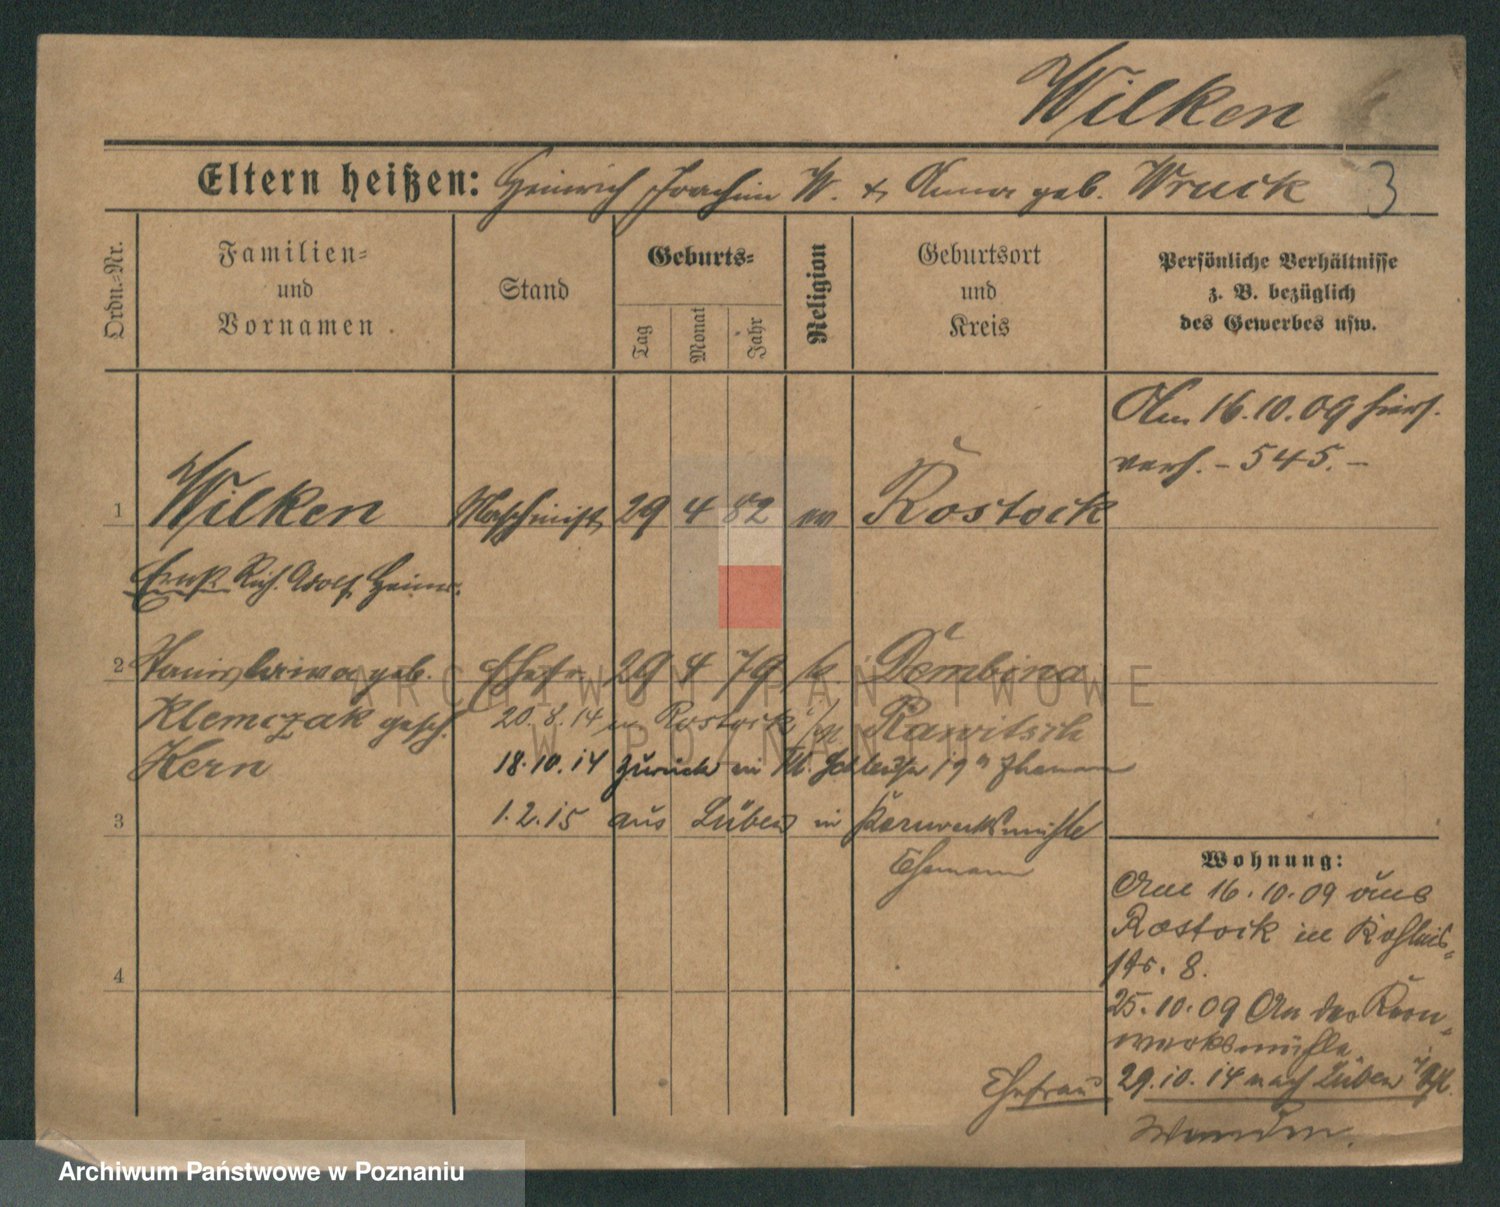 Wilken
Eltern heißen: Heinrich Joachim W. & Anna geb. Wruck
3
Ordn.-Nr.
Familien-
und
Vornamen.
Stand
Geburts-
Tag
Monat
Jahr
Religion
Geburtsort
und
Kreis
Persönliche Verhältnisse
z. B. bezüglich
des Gewerbes usw.
Am 16.10.09 hiers.
verh. - 545. -
1 Wilken Maschinist 29 4 82 ev Rostock
Ernst Rich. Adolf Heinr.
2 Stanislawa geb. Ehefr. 29 4 79 k. Dembina
Klemczak gesch. 20.8.14 in Rostock Rawitsch
Kern 18.10.14 zurück
3 1.2.15 aus Lüben in Kernwerksmühle
Ehemann
4
Wohnung:
Am 16.10.09 aus
Rostock in Kohleis-
str. 8.
25.10.09 An der Kern-
werksmühle
Ehefrau 29.10.14 nach Lüben
ARCHIWUM PAŃSTWOWE
W POZNANIU
Archiwum Państwowe w Poznaniu